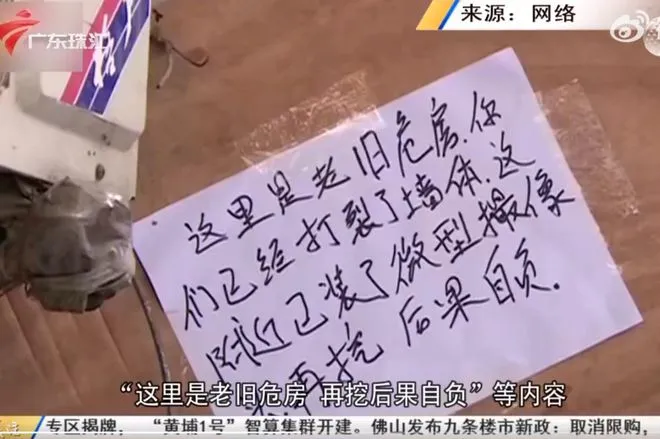 来源：网络
广东珠江
这里是老旧危房.你
们已经打裂了墙体.这
附近已装了微型撮像
再挖 后果自负.
“这里是老旧危房 再挖后果自负”等内容
专区揭牌， “黄埔1号”智算集群开建。佛山发布九条楼市新政：取消限购，